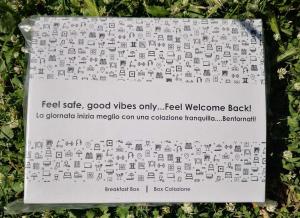 Feel safe, good vibes only...Feel Welcome Back!
La giornata inizia meglio con una colazione tranquilla....Bentornati!
Breakfast Box | Box Colazione